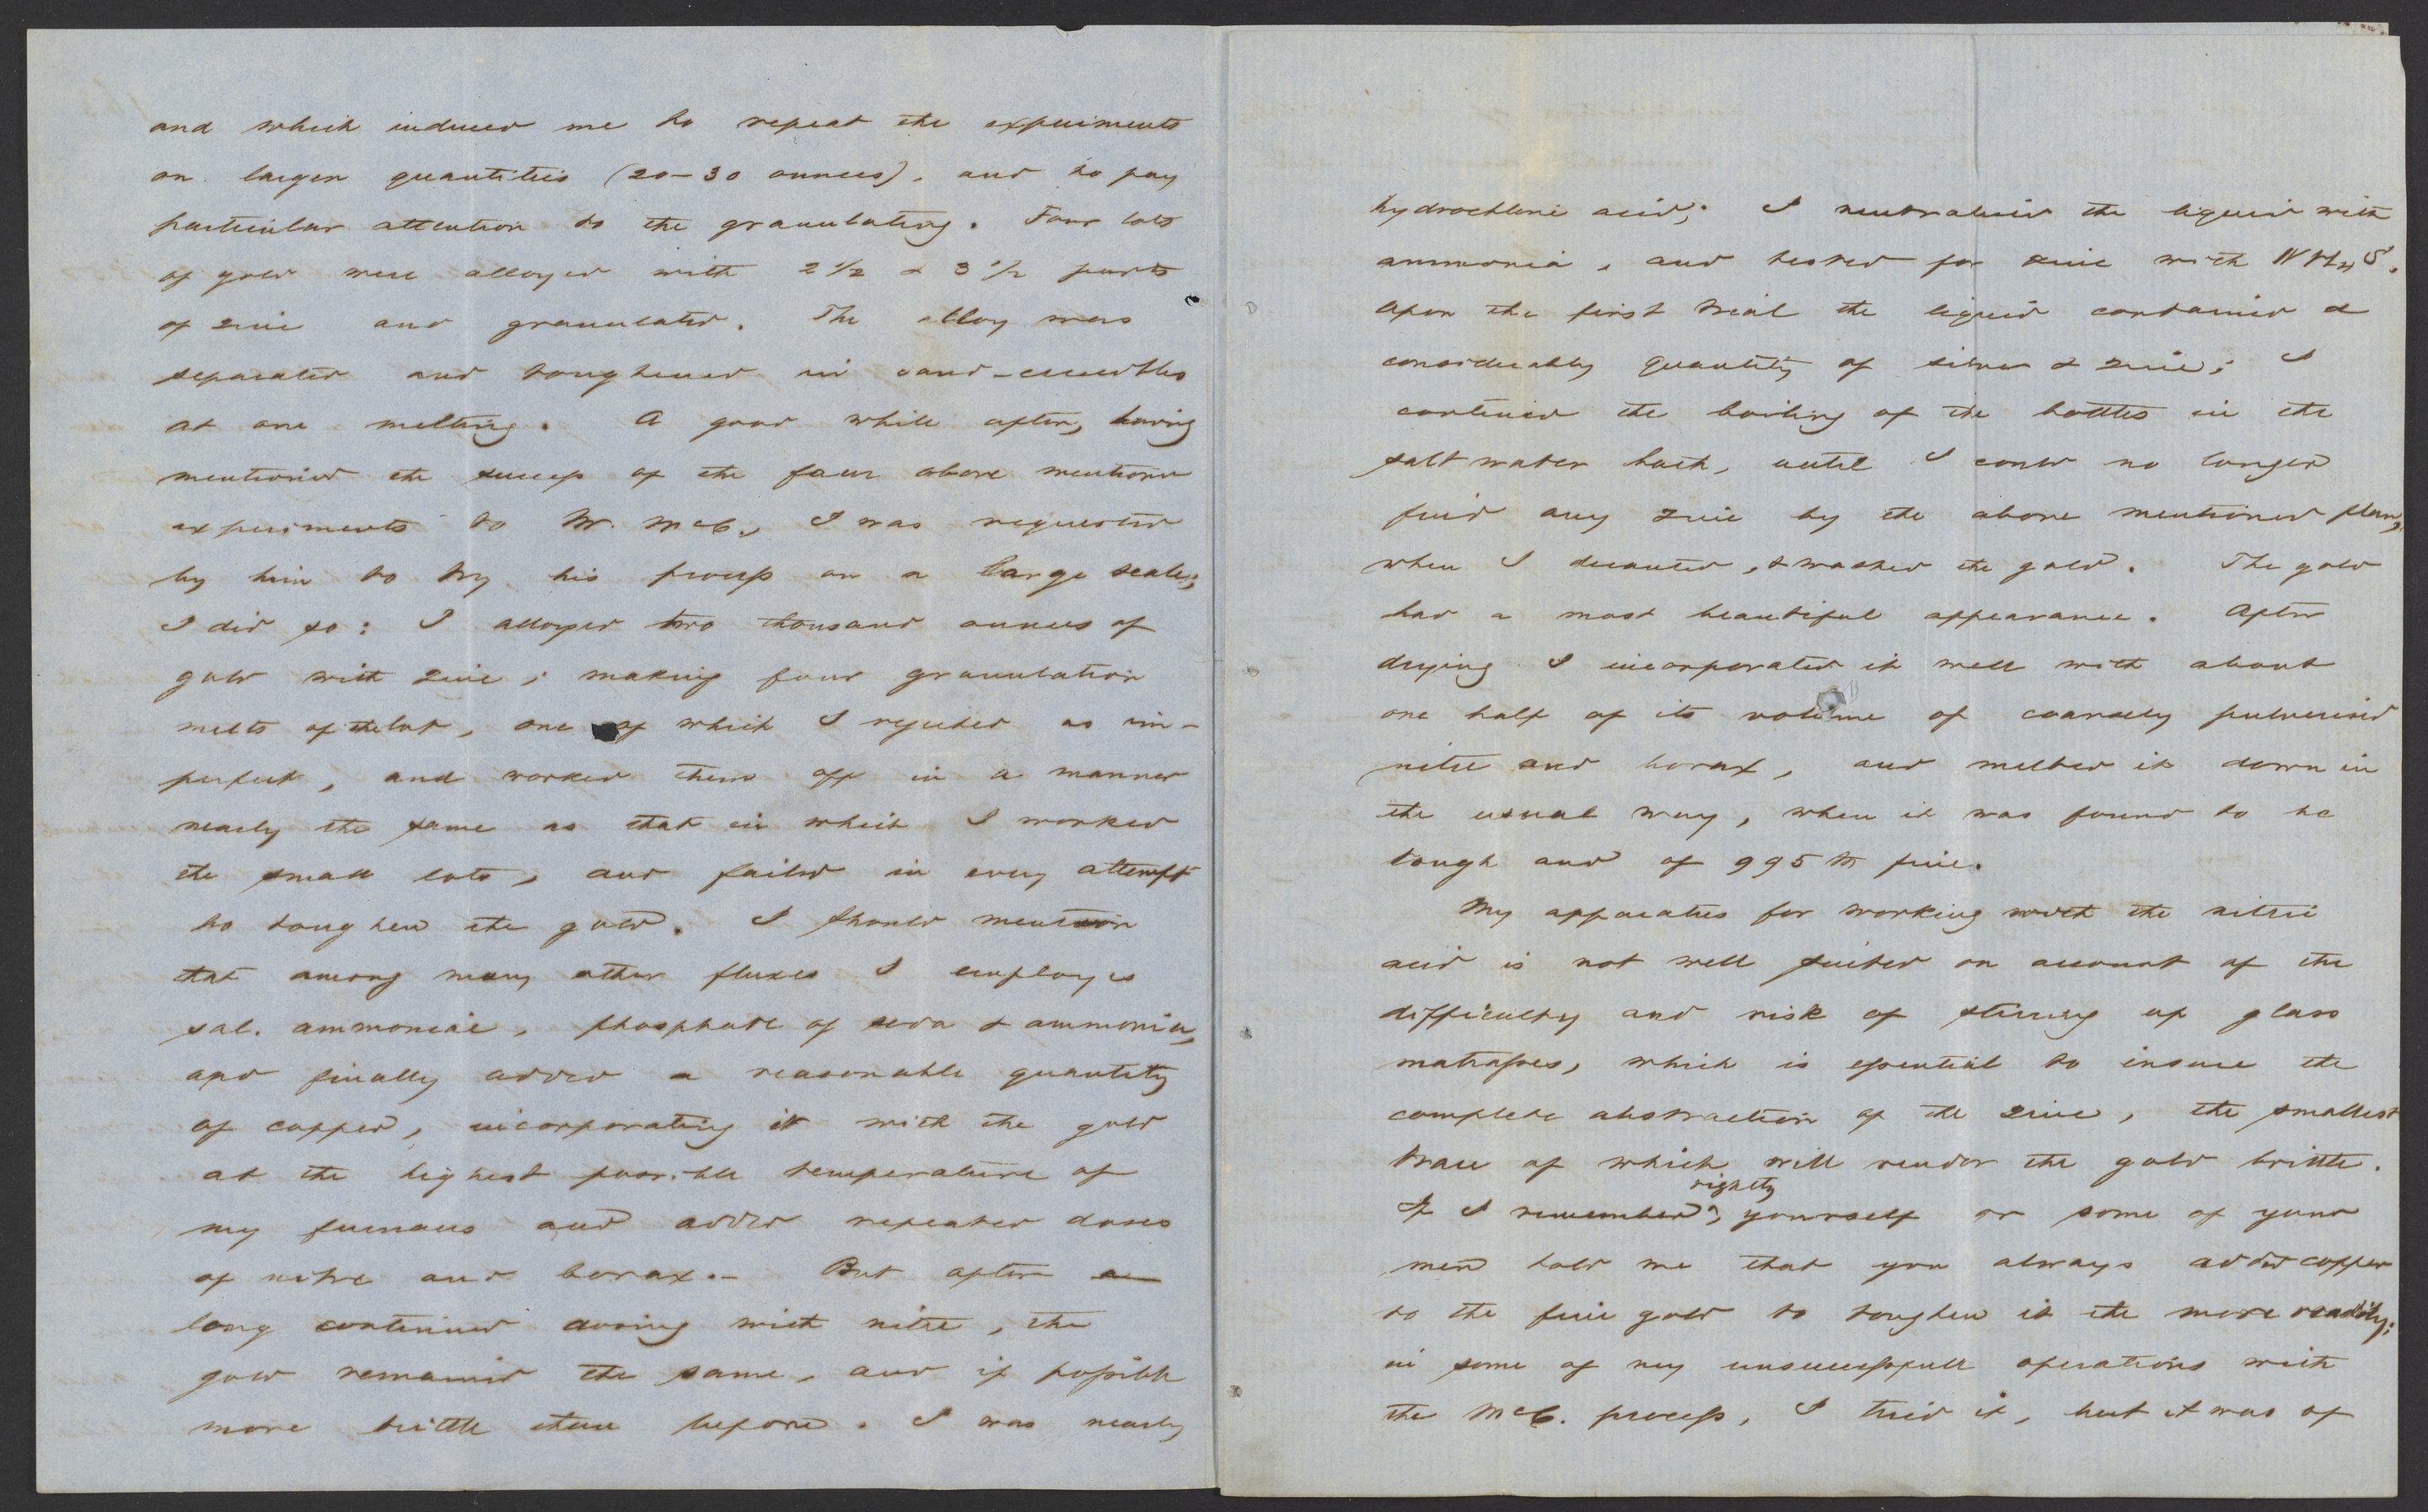 and which induced me to repeat the experiments
on larger quantities (20-30 ounces), and to pay
particular attention to the granulating. Four lots
of gold were alloyed with 2½ & 3½ parts
of zinc and granulated. The alloy was
separated and toughened in sand-crucibles
at one melting. A good while after, having
mentioned the success of the four above mention
experiments to Mr. McC., I was requested
by him to try his process on a large scale;
I did so: I alloyed two thousand ounces of
gold with zinc; making four granulation
melts of the lot, one of which I rejected as im-
perfect, and worked them off in a manner
nearly the same as that in which I worked
the small lots, and failed in every attempt
to toughen the gold. I should mention
that among many other fluxes I employed
sal. ammoniac, phosphate of soda & ammonia,
and finally added a reasonable quantity
of copper, incorporating it with the gold
at the highest possible temperature of
my furnaces and added repeated doses
of nitre and borax.- But after a
long continued dosing with nitre, the
gold remained the same, and if possible
more brittle than before. I was nearly
hydrochloric acid; I neutralized the liquid with
ammonia, and tested for zinc with NH4S.
Upon the first trial the liquid contained a
considerably quantity of silver & zinc; I
continued the boiling of the bottles in the
salt water bath, until I could no longer
find any zinc by the above mentioned plan,
when I decanted, & washed the gold. The gold
had a most beautiful appearance. After
drying I incorporated it well with about
one half of its volume of coarsely pulverized
nitre and borax, and melted it down in
the usual way, when it was found to be
tough and of 995 m fine.
My apparatus for working with the nitric
acid is not well suited on account of the
difficulty and risk of stirring up glass
matrasses, which is essential to insure the
complete abstraction of the zinc, the smallest
trace of which will render the gold brittle.
If I remember rightly, yourself or some of your
men told me that you always added copper
to the fine gold to toughen it the more readily;
in some of my unsuccessfull operations with
the McC. process, I tried it, but it was of